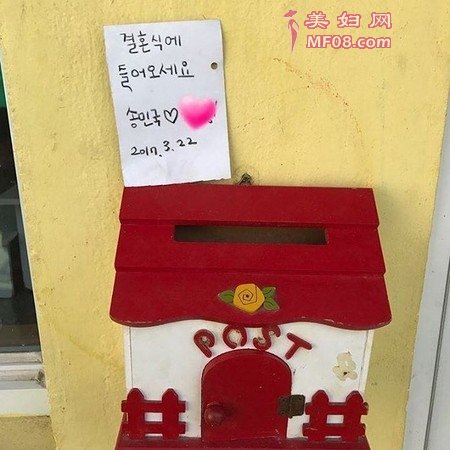 美妇网
MF08.com
결혼식에
들어오세요
송민국♡
2017.3.22
POST